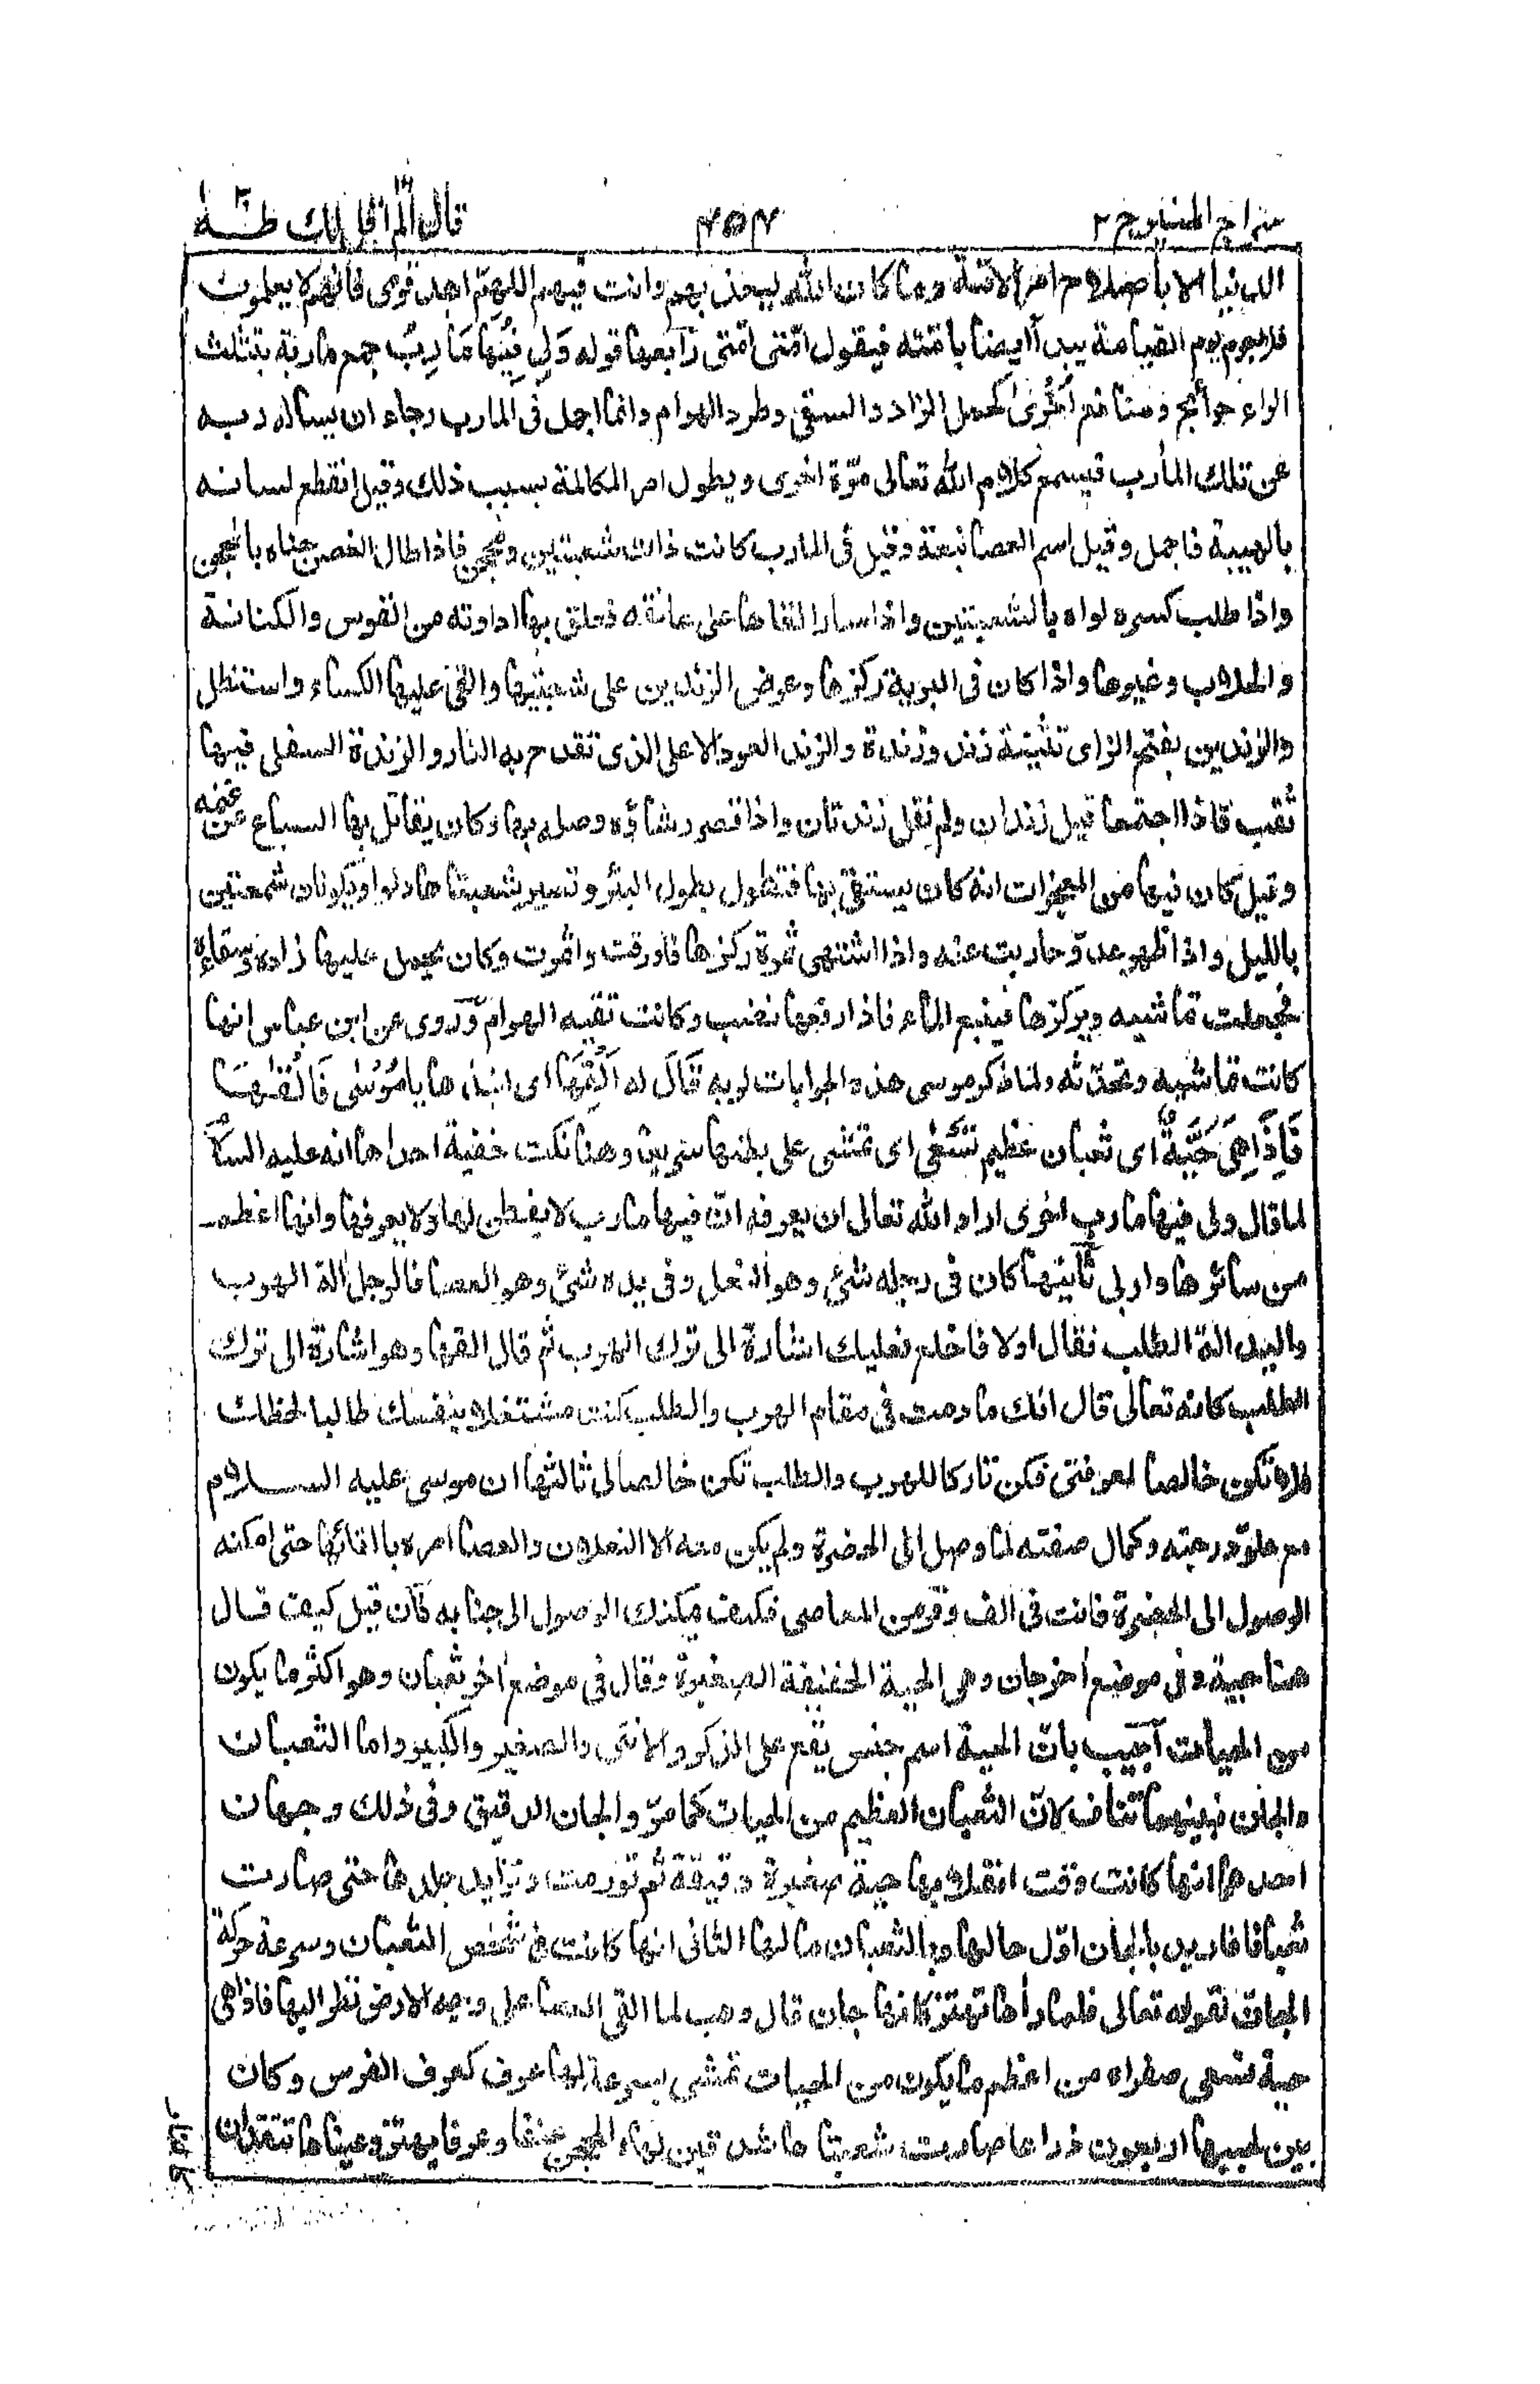 سراج المنير ج ٢
٤٥٢
قال ألم اقل لك طٰهٰ
الدنيا الا باصلاح امر الامّة وما كان الله ليعذبهم وانت فيهم اللهمّ اهد قومى فانهم لا يعلمون
فلا جرم يوم القيامة يبدأ ايضا بامّته فيقول امّتى امّتى رابعها قوله وَلِى فِيْهَا مَاٰرِبُ جمع مأربة بتثليث
الراء حوائج ومنافع اُخْرٰى كحمل الزاد والسقى وطرد الهوام وانما اجمل فى المارب رجاء ان يساله ربه
عن تلك المارب فيسمع كلام الله تعالى مرّة اخرى ويطول امر المكالمة بسبب ذلك وقيل انقطع لسانه
بالهيبة فاجمل وقيل اسم العصا نبعة وقيل فى المارب كانت ذات شعبتين ومحجن فاذا طال الغصن حناه بالمحجن
واذا طلب كسره لواه بالشعبتين واذا سار القاها على عاتقه فعلق بها اداوته من القوس والكنانة
والحلاب وغيرها واذا كان فى البرية ركزها وعرض الزندين على شعبتيها والقى عليها الكساء واستظل
والزندين بفتح الزاى تثنية زند وزندة والزند العود الاعلى الذى تقدح به النار والزندة السفلى فيها
ثقب فاذا اجتمعا قيل زندان ولم نقل زندتان واذا قصر رشاؤه وصله بها وكان يقاتل بها السباع عن غنمه
وقيل كان فيها من المعجزات انه كان يستقى بها فتطول بطول البئر وتصير شعبتاها دلوا وتكونان شمعتين
بالليل واذا ظهر عدوّ حاربت عنه واذا اشتهى ثمرة ركزها فاورقت واثمرت وكان يحمل عليها زاده وسقاءه
فجعلت تماشيه ويركزها فينبع الماء فاذا رفعها نضب وكانت تقيه الهوام وروى عن ابن عباس انها
كانت تماشيه وتحدّثه ولما ذكر موسى هذه الجوابات لربه قَالَ له اَلْقِهَا اى انبذها يا مُوْسٰى فَاَلْقٰهَا
فَاِذَا هِىَ حَيَّةٌ اى ثعبان عظيم تَسْعٰى اى تمشى على بطنها سريعا وهنا نكت خفية احداها انه عليه السلام
لما قال ولى فيها مارب اخرى اراد الله تعالى ان يعرفه انّ فيها مارب لا يفطن لها ولا يعرفها وانها اعظم
من سائرها واربى ثانيتها كان فى رجله شئ وهو النعل وفى يده شئ وهو العصا فالرجل اٰلة الهرب
واليد اٰلة الطلب فقال اولا فاخلع نعليك اشارة الى ترك الهرب ثم قال القها وهو اشارة الى ترك
الطلب كانه تعالى قال انك ما دمت فى مقام الهرب والطلب كنت مشتغلا بنفسك طالبا لحظك
فلا تكون خالصا لمعرفتى فكن تاركا للهرب والطلب تكن خالصا لى ثالثها ان موسى عليه السلام
مع علوّ درجته وكمال صفته لما وصل الى الحضرة ولم يكن معه الا النعلان والعصا امره بالقائها حتى امكنه
الوصول الى الحضرة فانت فى الف وقر من المعاصى فكيف يمكنك الوصول الى جنابه فان قيل كيف قال
هنا حية وفى موضع اٰخر جان وهى الحية الخفيفة الصغيرة وقال فى موضع اٰخر ثعبان وهو اكثر ما يكون
من الحيات اجيب بانّ الحية اسم جنس يقع على الذكر والانثى والصغير والكبير واما الثعبان
والجان فبينهما تناف لانّ الثعبان العظيم من الحيات كما مرّ والجان الدقيق وفى ذلك وجهان
احدهما انها كانت وقت انقلابها حية صغيرة دقيقة ثم تورمت وتزايد جلدها حتى صارت
ثعبانا فاريد بالجان اوّل حالها وبالثعبان مالها الثانى انها كانت فى شخص الثعبان وسرعة حركة
الجان لقوله تعالى فلما راٰها تهتز كانها جان قال وهب لما القى العصا على وجه الارض نظر اليها فاذا هى
حية تسعى صفراء من اعظم ما يكون من الحيات تمشى بسرعة لها عرف كعرف الفرس وكان
بين لحييها اربعون ذراعا صارت شعبتاها شدقين لها والمحجن عنقا وعرفا يهتز وعيناها تتقدان